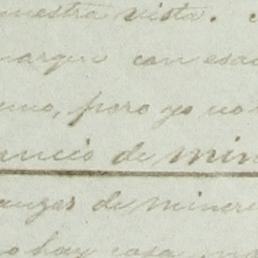 nuestra vista.
margen con esa
uno, pero yo no
ancio de min
anzas de minera
no hay cosa